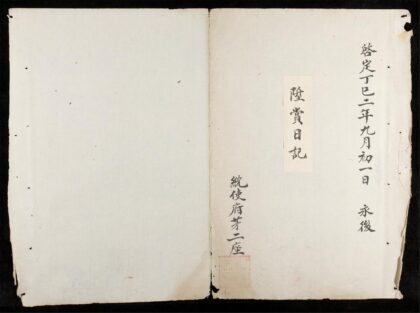 啓定丁巳二年九月初一日 永後
陞賞日記
統使府茅二座